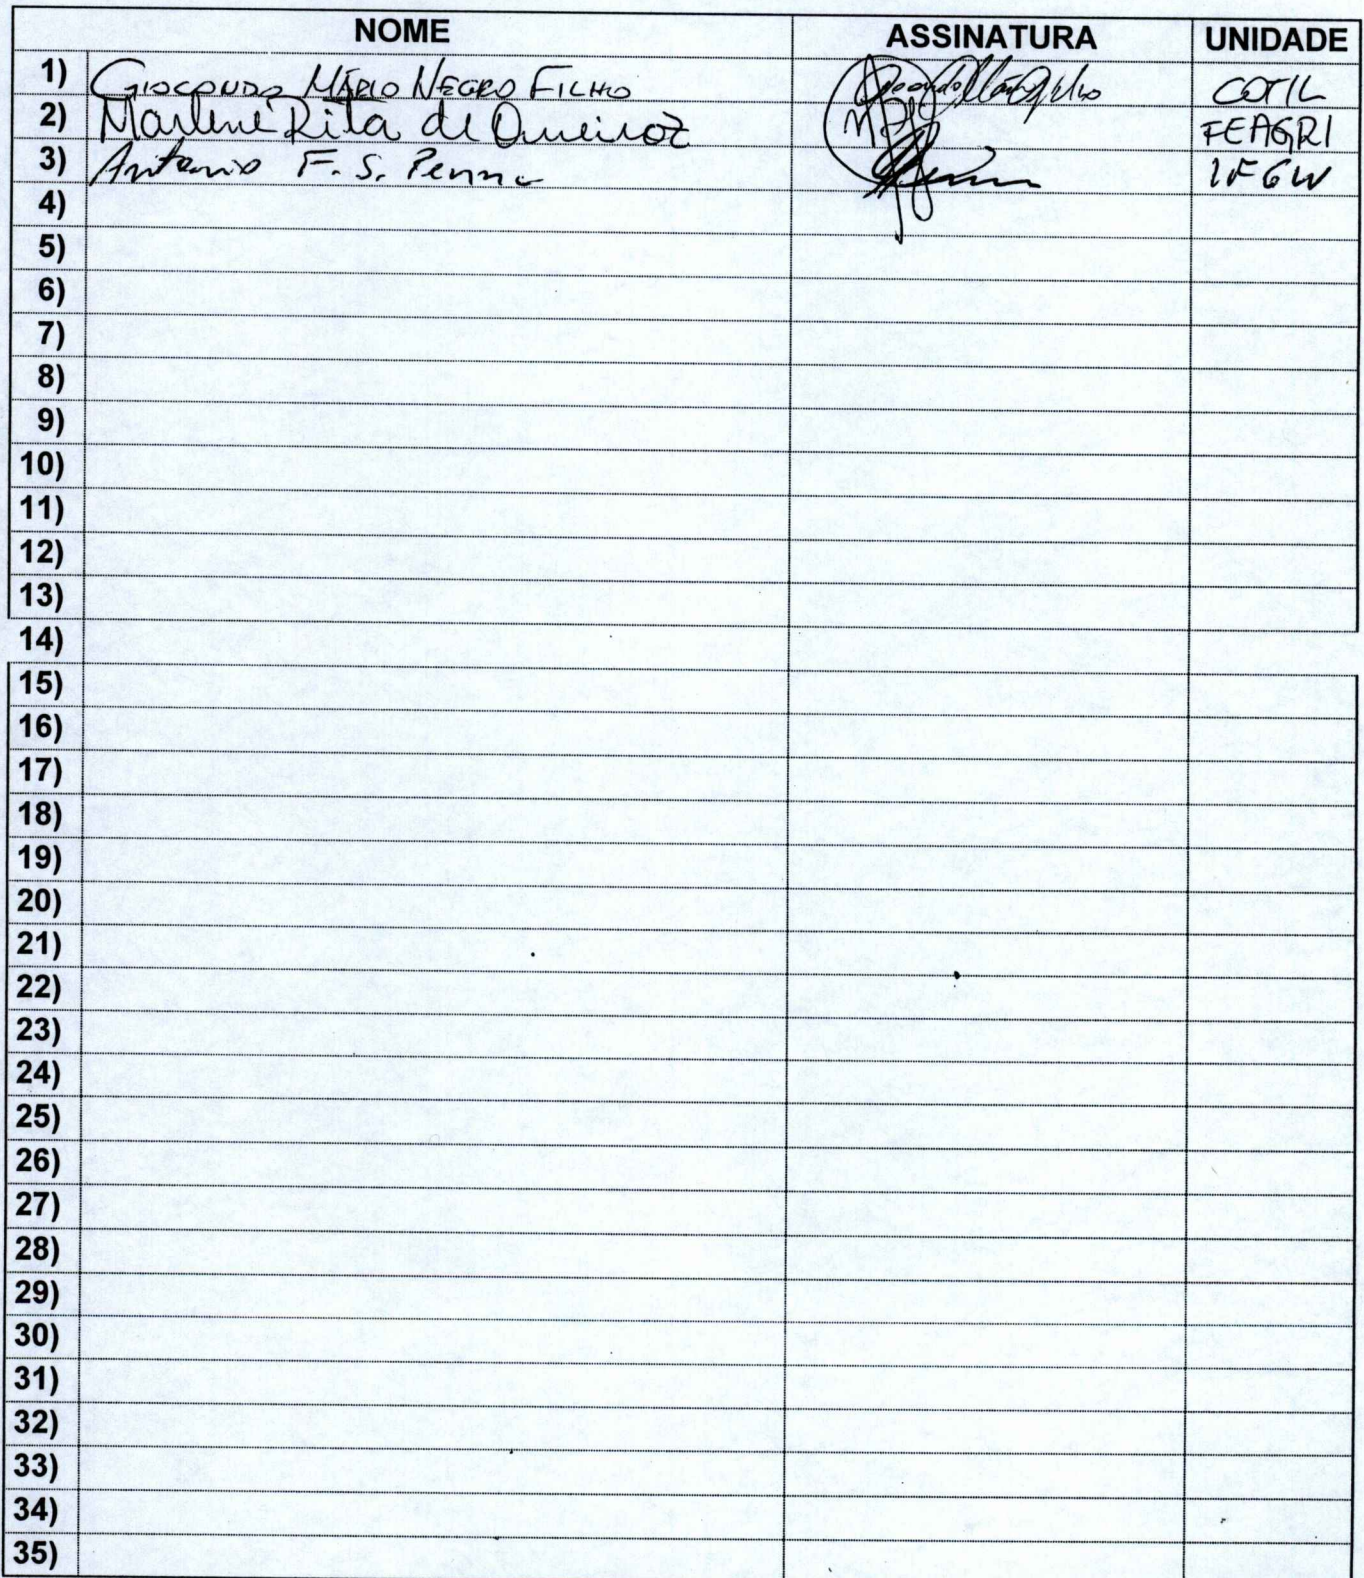 NOME ASSINATURA UNIDADE
1) GIOCONDO MÁRIO NEGRO FILHO COTIL
2) Marlene Rita de Queiroz FEAGRI
3) Antonio F. S. Penna IFGW
4)
5)
6)
7)
8)
9)
10)
11)
12)
13)
14)
15)
16)
17)
18)
19)
20)
21)
22)
23)
24)
25)
26)
27)
28)
29)
30)
31)
32)
33)
34)
35)